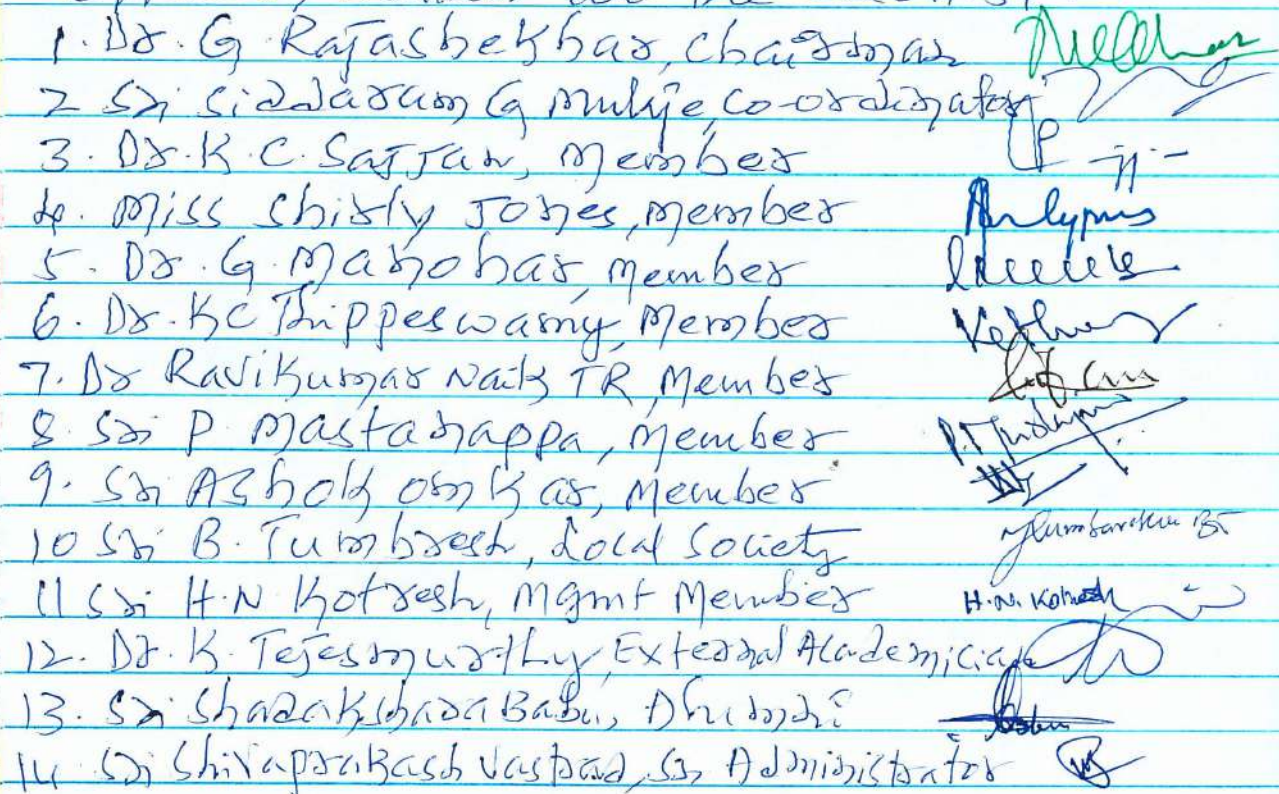 1. Dr. G Rajashekhar, Chairman
2 Sri Siddaram G Mulije, Co-ordinator
3. Dr. K. C. Sajjan, Member
4. Miss Shirly Jones, Member
5. Dr. G. Manohar, Member
6. Dr. KC Thippeswamy, Member
7. Dr Ravikumar Naik TR, Member
8. Sri P. Mastanappa, Member
9. Sri Ashok Omkar, Member
10 Sri B. Tumbresh, Local Society
11 Sri H.N Kotresh, Mgmt Member H.N. Kotresh
12. Dr. K. Tejesmurthy, External Academician
13. Sri Shadakshara Babu,
14. Sri Shivaprakash Vastrad, Sr. Administrator